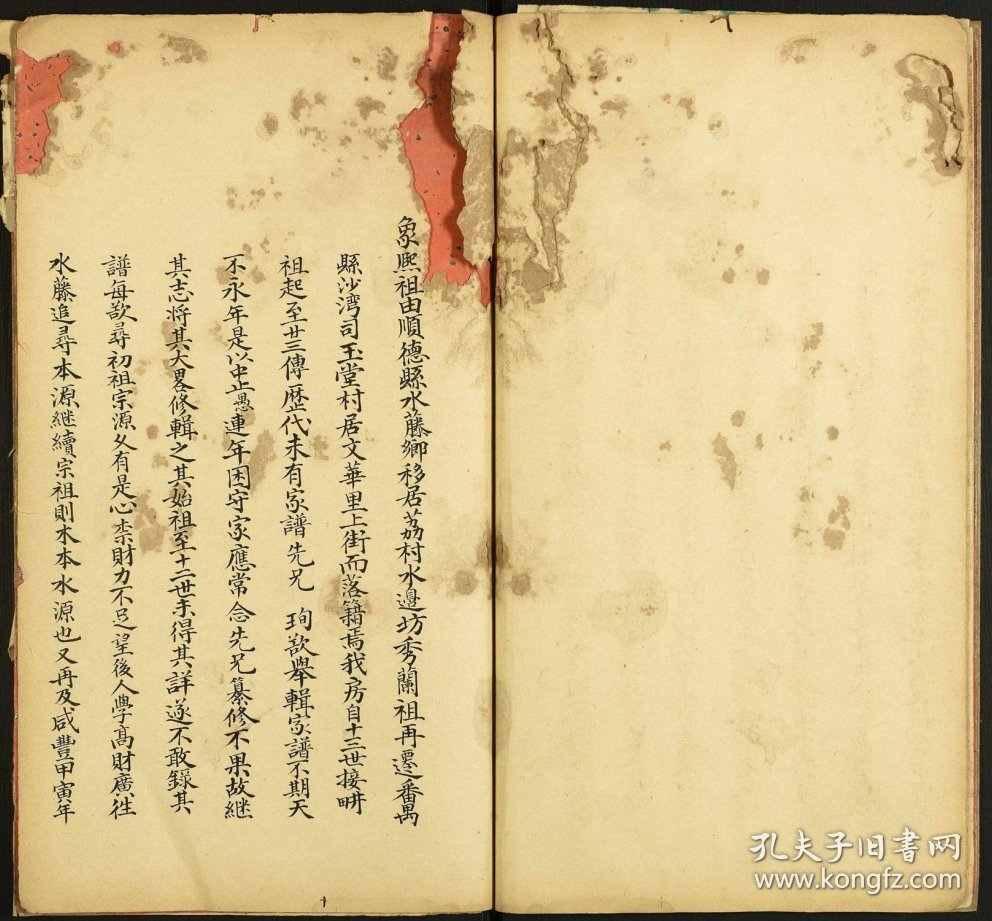 象熙祖由順德縣水藤鄉移居荔村水邊坊秀蘭祖再遷番禺
縣沙湾司玉堂村居文華里上街而落籍焉我房自十三世接畊
祖起至廿三傳歷代未有家譜先兄 珣欲舉輯家譜不期天
不永年是以中止愚連年困守家應常念先兄纂修不果故継
其志將其大畧修輯之其始祖至十二世未得其詳遂不敢錄其
譜每欲尋初祖宗源久有是心柰財力不足望後人學高財廣徃
水藤追尋本源継續宗祖則木本水源也又再及咸豐甲寅年
孔夫子旧书网
www.kongfz.com